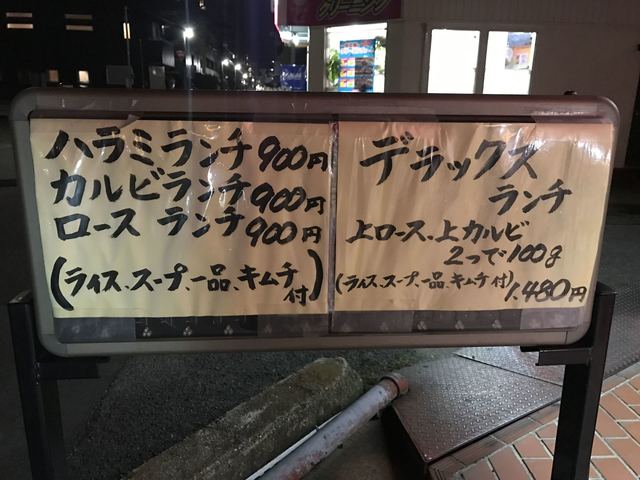 ハラミランチ 900円
カルビランチ 900円
ロース ランチ 900円
(ライス、スープ、一品、キムチ付)
デラックス
ランチ
上ロース、上カルビ
2つで100g
(ライス、スープ、一品、キムチ付) 1,480円